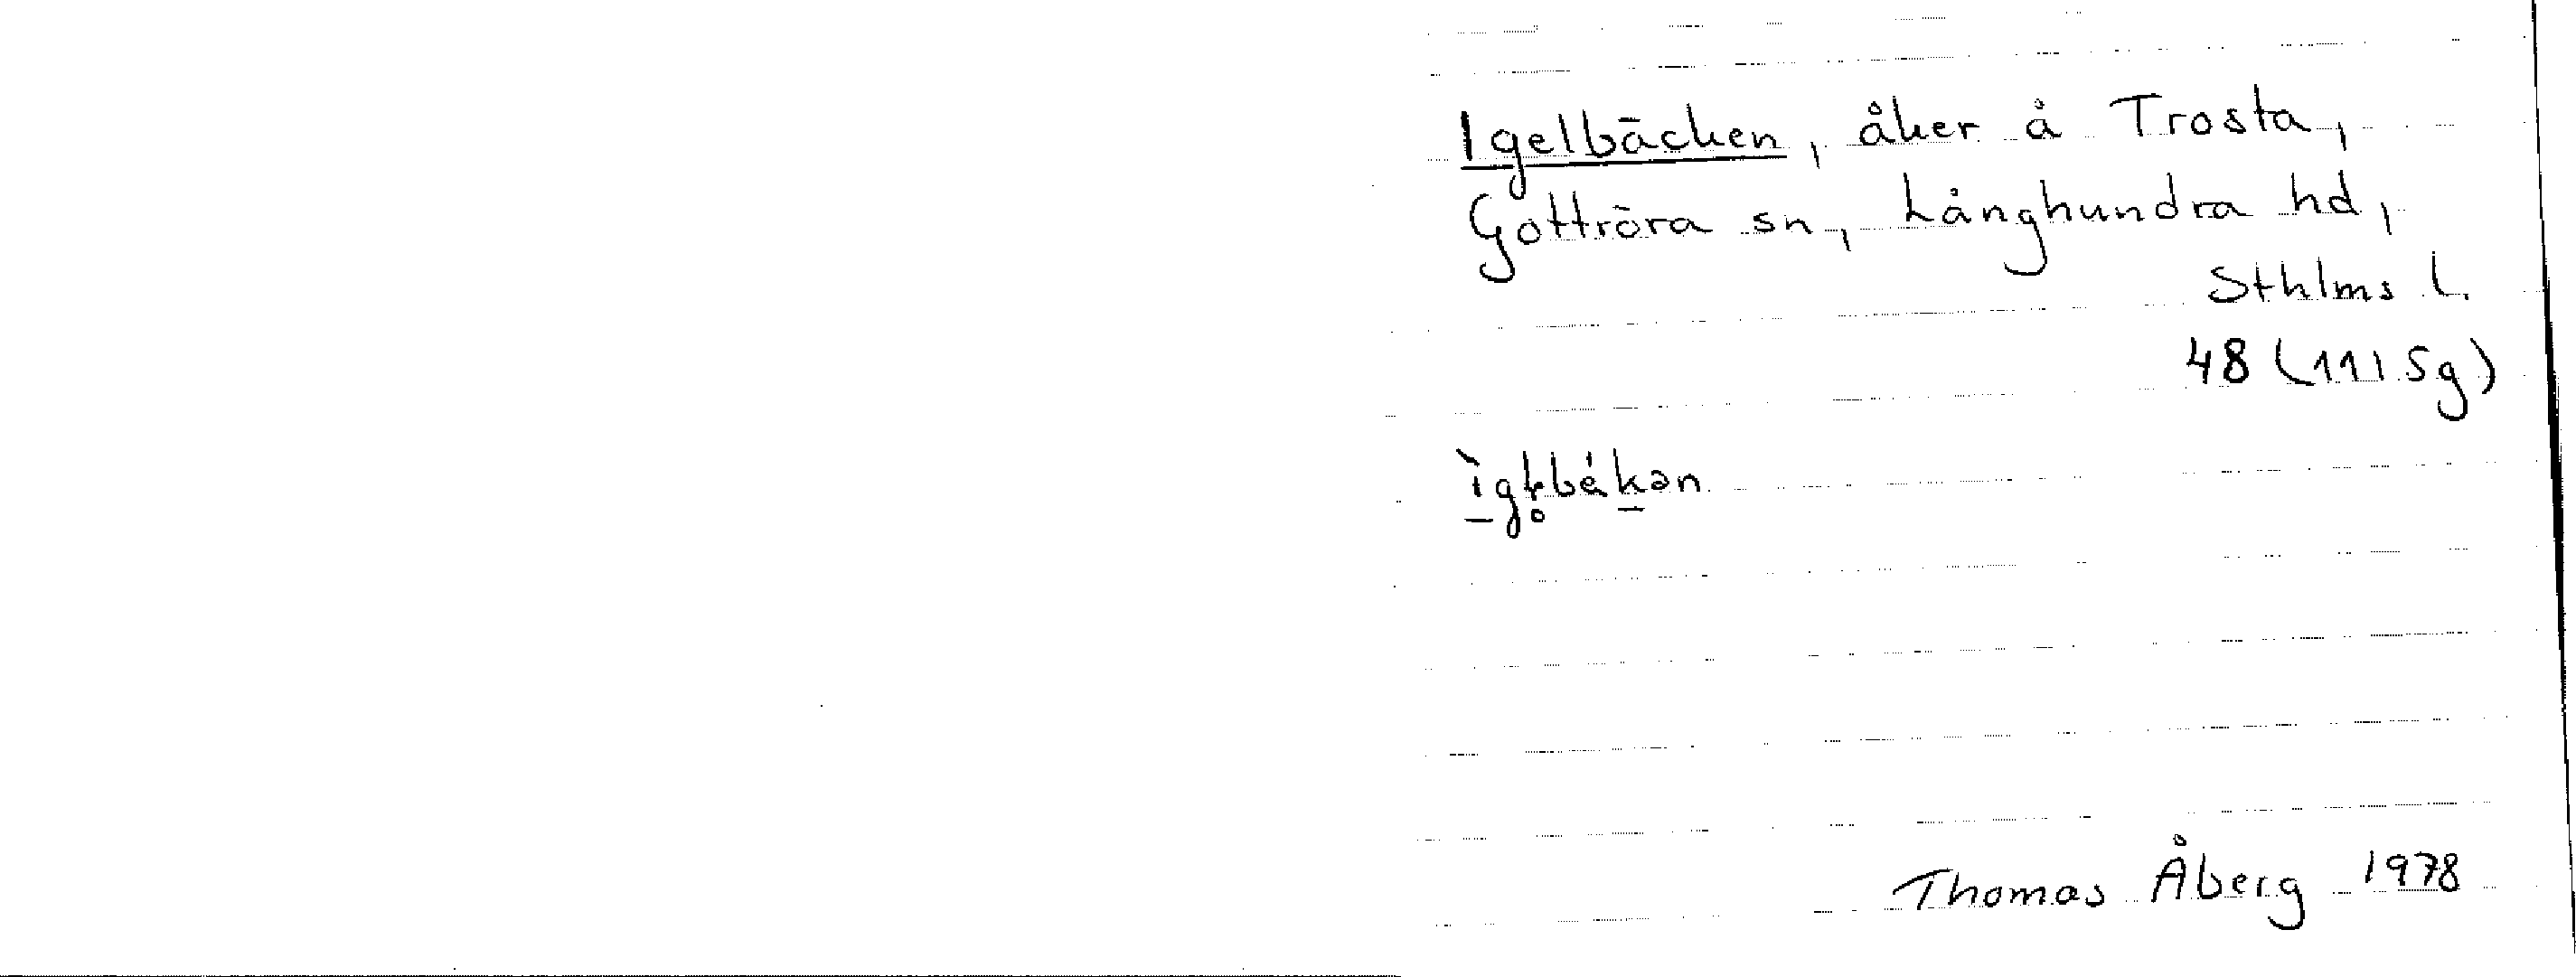 Igelbäcken, åker å Trosta,
Gottröra sn, Långhundra hd,
Sthlms l.
48 (11I 5g)
Thomas Åberg 1978